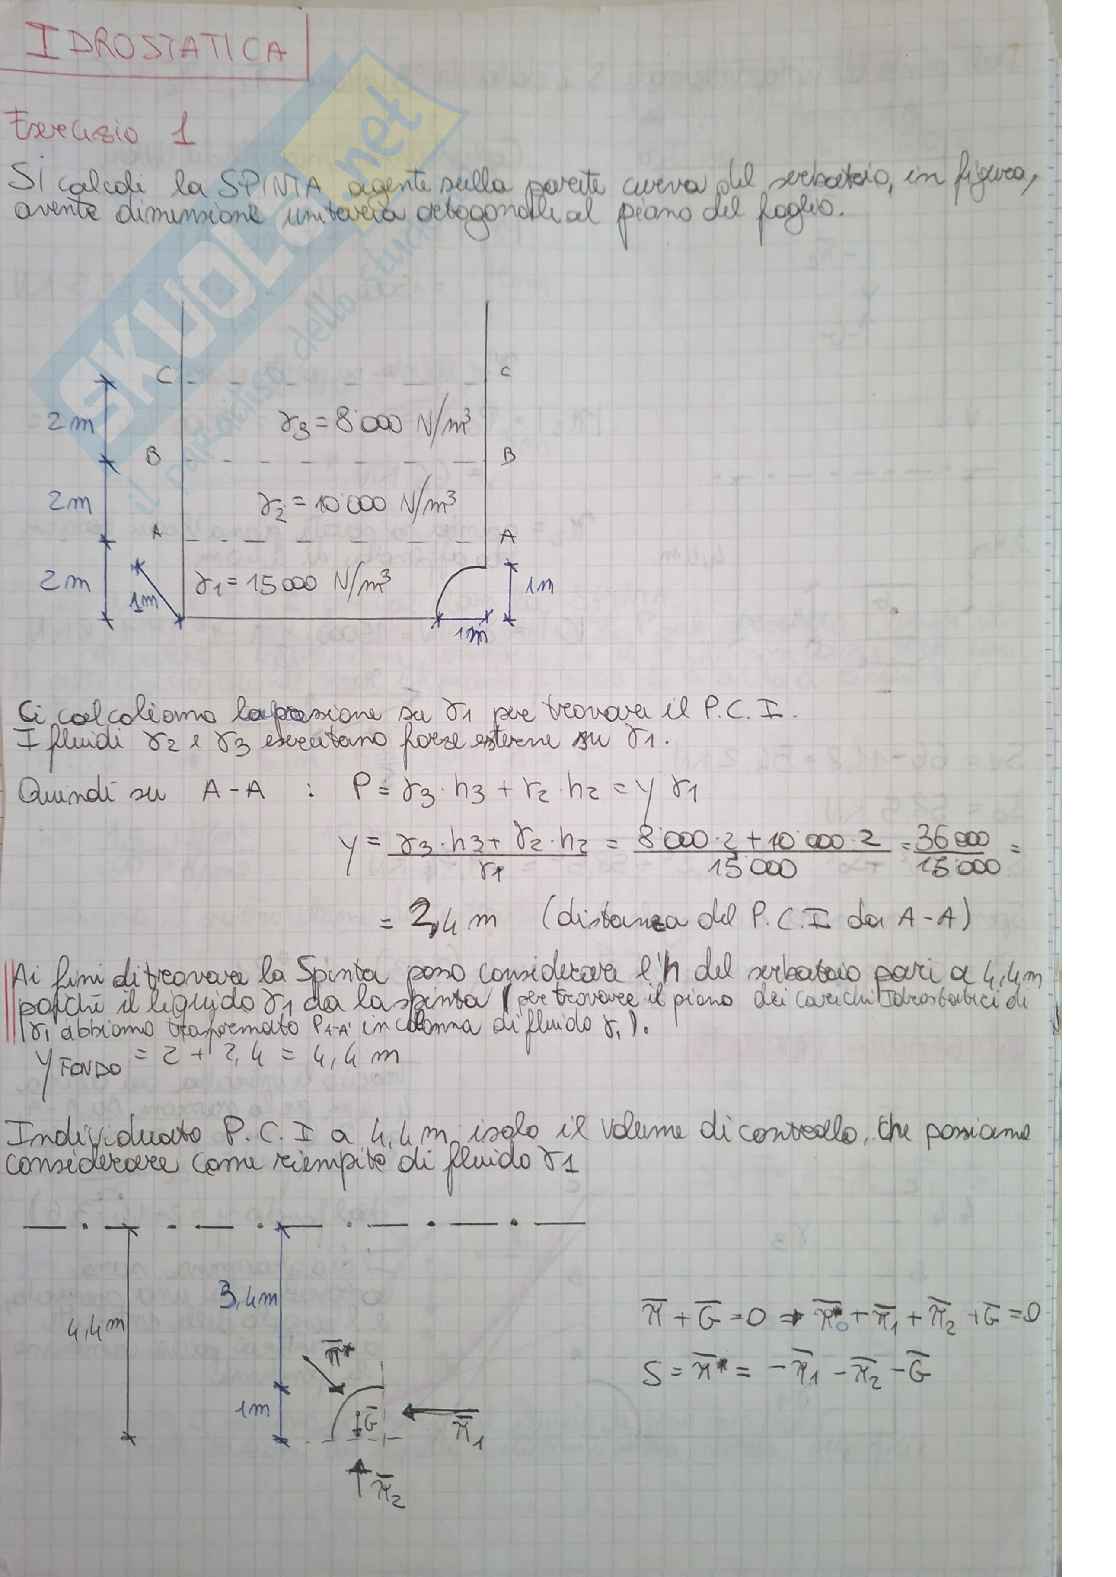 IDROSTATICA
Esercizio 1
Si calcoli la SPINTA agente sulla parete curva del serbatoio, in figura,
avente dimensione unitaria ortogonale al piano del foglio.
SKUOLA.net
il paradiso dello stud
C C
2m γ3 = 8'000 N/m³
B B
2m γ2 = 10'000 N/m³
A A
2m 1m γ1 = 15'000 N/m³ 1m
1m
Ci calcoliamo la pressione su γ1 per trovare il P.C.I.
I fluidi γ2 e γ3 esercitano forze esterne su γ1.
Quindi su A-A : P = γ3·h3 + γ2·h2 = y γ1
y = (γ3·h3 + γ2·h2)/γ1 = (8'000·2 + 10'000·2)/15'000 = 36'000/15'000 =
= 2,4 m (distanza del P.C.I da A-A)
Ai fini di trovare la Spinta posso considerare l'h del serbatoio pari a 4,4m
poiché il liquido γ1 da la spinta (per trovare il piano dei carichi Idrostatici di
γ1 abbiamo trasformato PA-A in colonna di fluido γ1).
yFONDO = 2 + 2,4 = 4,4 m
Individuato P.C.I a 4,4 m, isolo il volume di controllo, che possiamo
considerare come riempito di fluido γ1
4,4m 3,4m
1m π̄* Ḡ π̄1
π̄2
π̄ + Ḡ = 0 ⇒ π̄*0 + π̄1 + π̄2 + Ḡ = 0
S = π̄* = -π̄1 - π̄2 - Ḡ